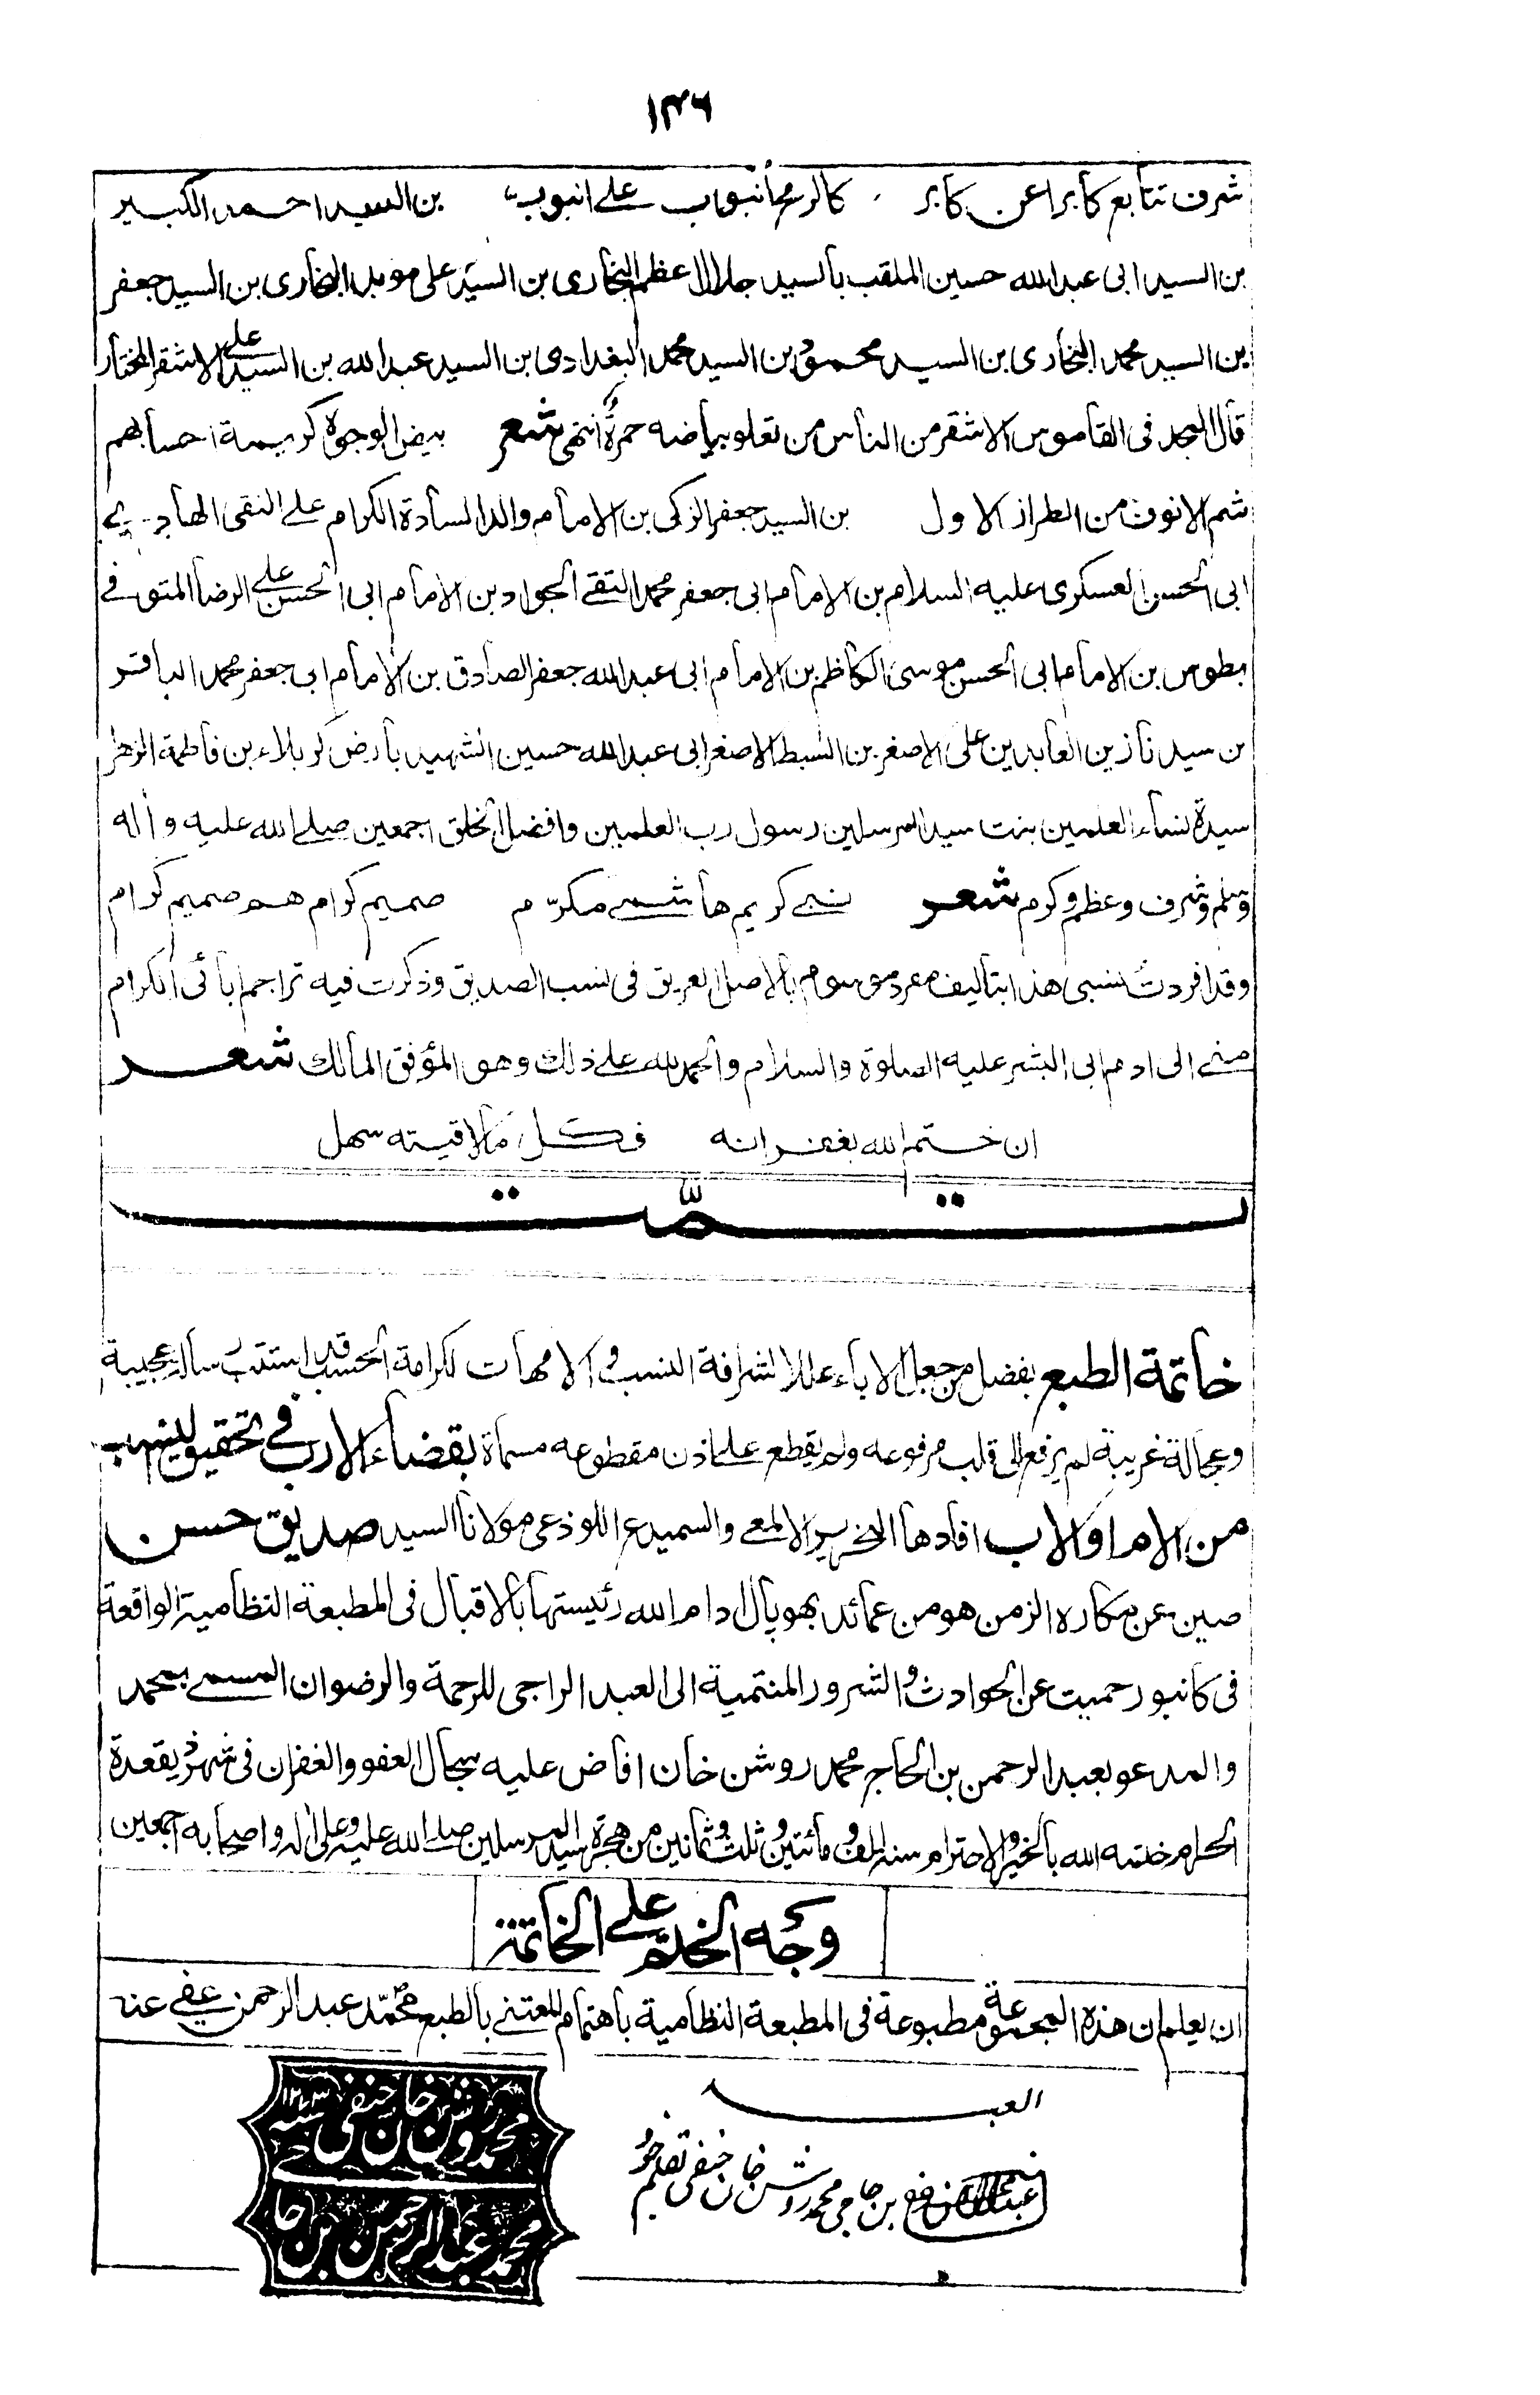 ۱۳۶
شرف تتابع كابرا عن كابر كالرمح أنبوب على انبوب بن السيد احمد الكبير
بن السيد ابى عبدالله حسين الملقب بالسيد جلال اعظم البخارى بن السيد على مويد البخارى بن السيد جعفر
بن السيد محمد البخارى بن السيد محمود بن السيد محمد البغدادى بن السيد عبدالله بن السيد على الاشقر المختار
قال المجد فى القاموس الاشقر من الناس من تعلو بياضه حمرة انتهى شعر بيض الوجوه كريمة احسابهم
شم الانوف من الطراز الاول بن السيد جعفر الزكى بن الامام والد السادة الكرام على النقى الهادى
ابى الحسن العسكرى عليه السلام بن الامام ابى جعفر محمد التقى الجواد بن الامام ابى الحسن على الرضا المتوفى
بطوس بن الامام ابى الحسن موسى الكاظم بن الامام ابى عبدالله جعفر الصادق بن الامام ابى جعفر محمد الباقر
بن سيدنا زين العابدين على الاصغر بن السبط الاصغر ابى عبدالله حسين الشهيد بارض كربلاء بن فاطمة الزهرا
سيدة نساء العلمين بنت سيد المرسلين رسول رب العلمين وافضل الخلق اجمعين صلى الله عليه وآله
وسلم وشرف وعظم وكرم شعر نبى كريم هاشمى مكرّم صميم كرام هم صميم كرام
وقد افردت نسبى هذا بتاليف مفرد موسوم بالاصل العريق فى نسب الصديق وذكرت فيه تراجم ابائى الكرام
منى الى ادم ابى البشر عليه الصلوة والسلام والحمد لله على ذلك وهو المؤفق المالك شعر
ان ختم الله بغفرانه فكل ما لاقيته سهل
تمّت
خاتمة الطبع بفضل من جعل الاباء عللا لشرافة النسب و الامهات لكرامة الحسب قد استتب رسالة عجيبة
وعجالة غريبة لم يرفع الى قلب مرفوعه ولم يقطع على اذن مقطوعه مسماة بقضاء الارب فى تحقيق النسب
من الام او الاب افادها النحرير الالمعى والسميدع اللوذعى مولانا السيد صديق حسن
صين عن مكاره الزمن هو من عمائد بهوپال ادام الله رئيستها بالاقبال فى المطبعة النظامية الواقعة
فى كانپور حميت عن الحوادث و الشرور المنتمية الى العبد الراجى للرحمة والرضوان المسمى بمحمد
والمدعو بعبد الرحمن بن الحاج محمد روشن خان افاض عليه سجال العفو والغفران فى شهر ذيقعدة
الحرام ختمه الله بالخير و الاحترام سنه الف و مائتين و ثلث و ثمانين من هجرة سيد المرسلين صلى الله عليه وعلى اله واصحابه اجمعين
وجه الختم على الخاتمة
ان يعلم ان هذه المجموعة مطبوعة فى المطبعة النظامية باهتمام المعتنى بالطبع محمّد عبد الرحمن عفى عنه
العبد
بن حاجى محمد روشن خان حنفى
محمد روشن خان حنفى
محمد عبدالرحمن بن حا